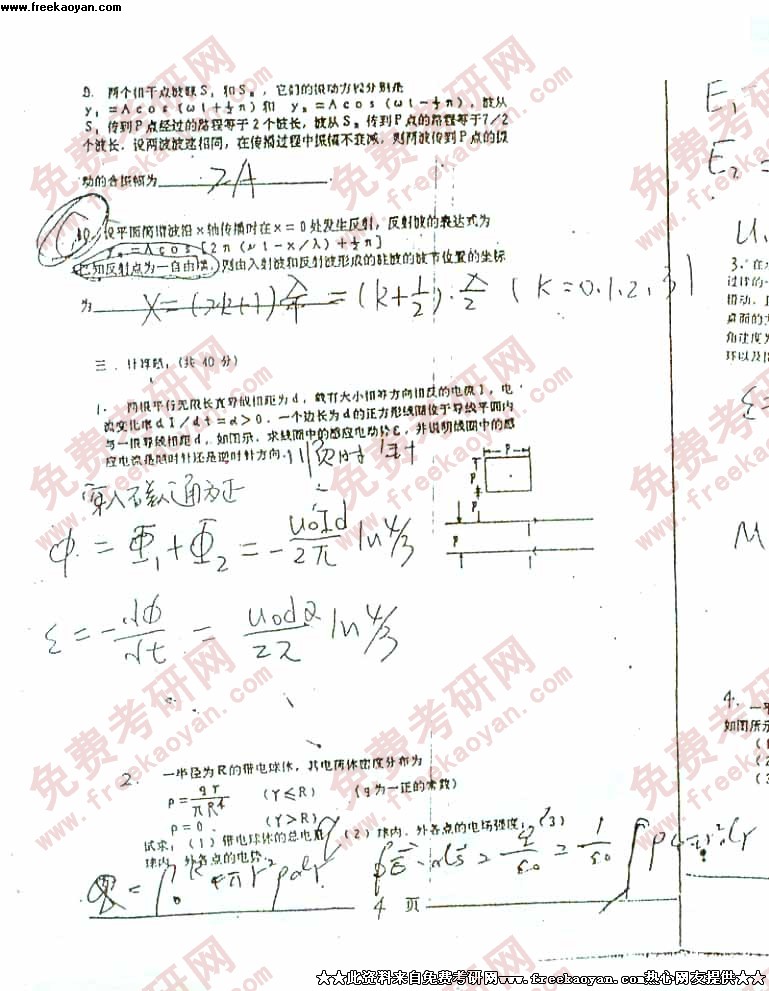 www.freekaoyan.com
9. 两个相干点波源S₁和S₂，它们的振动方程分别是
y₁=Acos(ωt+½π)和 y₂=Acos(ωt-½π)，波从
S₁传到P点经过的路程等于2个波长，波从S₂传到P点的路程等于7/2
个波长，设两波波速相同，在传播过程中振幅不衰减，则两波传到P点的振
动的合振幅为 2A
10. 设平面简谐波沿x轴传播时在x=0处发生反射，反射波的表达式为
y₂=Acos[2π(νt-x/λ)+½π]
已知反射点为一自由端，则由入射波和反射波形成的驻波的波节位置的坐标
为 x=(2k+1)λ/4 =(k+1/2)·λ/2 (k=0.1.2,3)
三．计算题：(共40分)
1. 两根平行无限长直导线相距为d，载有大小相等方向相反的电流I，电
流变化率dI/dt=α>0．一个边长为d的正方形线圈位于导线平面内
与一根导线相距d，如图示．求线圈中的感应电动势ε，并说明线圈中的感
应电流是顺时针还是逆时针方向．顺时针
穿入磁通为正
φ=Φ₁+Φ₂=-u₀Id/2π ln4/3
ε=-dφ/dt = u₀dα/2π ln4/3
2. 一半径为R的带电球体，其电荷体密度分布为
ρ=qr/πR⁴ (r≤R) (q为一正的常数)
ρ=0 (r>R)
试求：(1)带电球体的总电量 (2)球内、外各点的电场强度；(3)
球内、外各点的电势．
4 页
E₁
E₂ =
3. 在
桌面的
角速度
M
4. 一
如图所示
(1
(2
(3
免费考研网
www.freekaoyan.com
★★此资料来自免费考研网www.freekaoyan.com热心网友提供★★